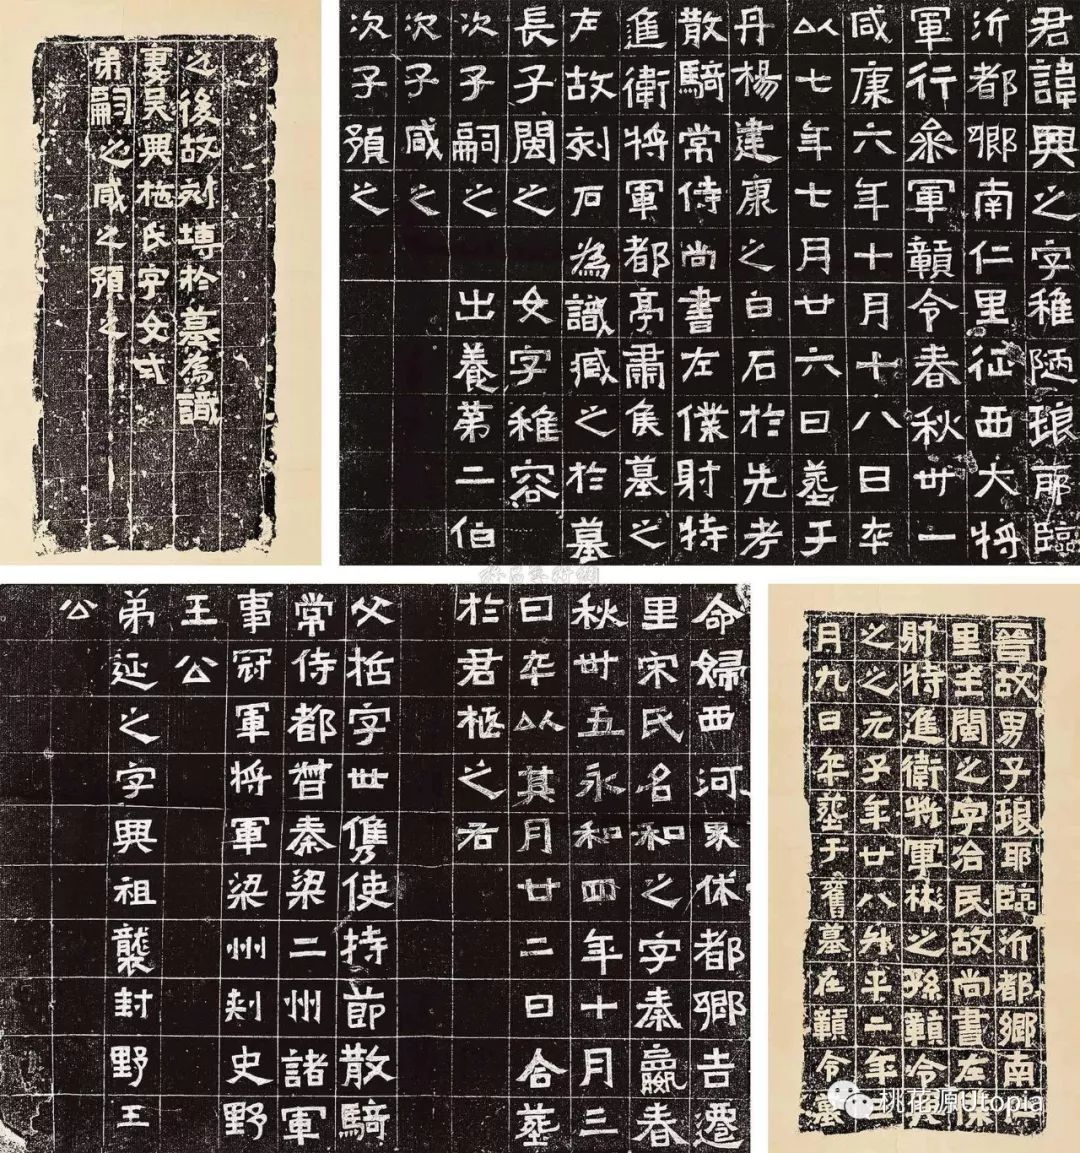 之後故刻塼於墓為識
妻吳興施氏字女式
弟嗣之咸之預之
君諱興之字稚陋琅耶臨
沂都鄉南仁里征西大將
軍行參軍贛令春秋卅一
咸康六年十月十八日卒
以七年七月廿六日葬于
丹楊建康之白石於先考
散騎常侍尚書左僕射特
進衛將軍都亭肅侯墓之
左故刻石為識臧之於墓
長子閩之 女字稚容
次子嗣之 出養第二伯
次子咸之
次子預之
命婦西河界休都鄉吉遷
里宋氏名和之字秦嬴春
秋卅五永和四年十月三
日卒以其月廿二日合葬
於君柩之右
父哲字世儁使持節散騎
常侍都督秦梁二州諸軍
事冠軍將軍梁州刺史野
王公
弟延之字興祖襲封野王
公
晉故男子琅耶臨沂都鄉南仁
里王閩之字冶民故尚書左僕
射特進衛將軍彬之孫贛令興
之之元子年廿八升平二年三
月九日卒葬于舊墓在贛令墓
桃花源Utopia